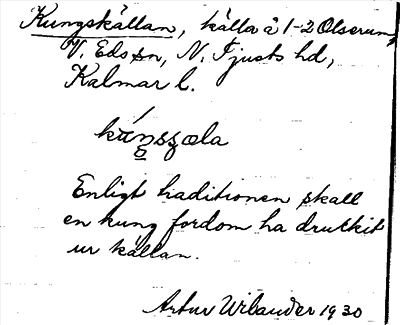 Kungskällan, källa å 1-2 Olserum,
V. Eds sn, N. Tjusts hd,
Kalmar l.
Enligt traditionen skall
en kung fordom ha druckit
ur källan.
Artur Urbander 1930